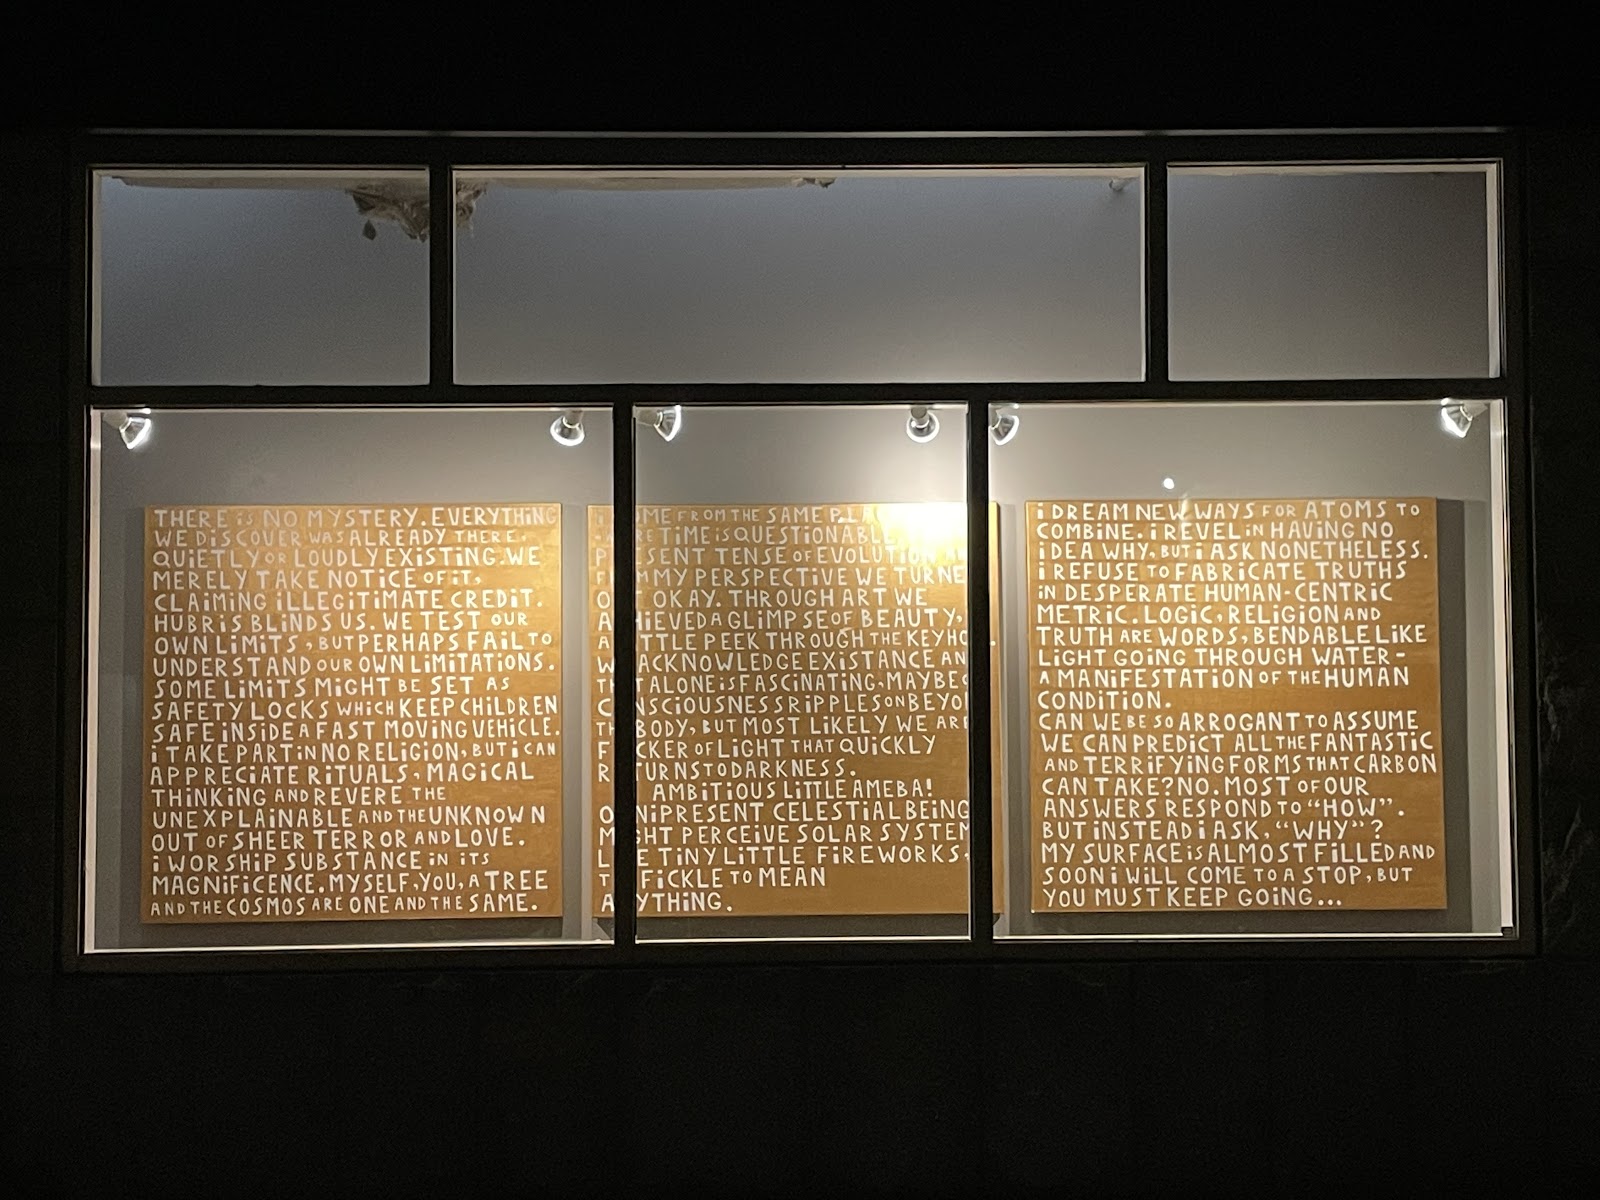 THERE iS NO MYSTERY. EVERYTHiNG
WE DiSCOVER WAS ALREADY THERE,
QUiETLY OR LOUDLY EXiSTiNG. WE
MERELY TAKE NOTiCE OF iT,
CLAiMiNG iLLEGiTiMATE CREDiT.
HUBRiS BLiNDS US. WE TEST OUR
OWN LiMiTS, BUT PERHAPS FAiL TO
UNDERSTAND OUR OWN LiMiTATiONS.
SOME LiMiTS MiGHT BE SET AS
SAFETY LOCKS WHiCH KEEP CHiLDREN
SAFE iNSiDE A FAST MOViNG VEHiCLE.
i TAKE PART iN NO RELiGiON, BUT i CAN
APPRECiATE RiTUALS, MAGiCAL
THiNKiNG AND REVERE THE
UNEXPLAiNABLE AND THE UNKNOWN
OUT OF SHEER TERROR AND LOVE.
i WORSHiP SUBSTANCE iN iTS
MAGNiFiCENCE. MYSELF, YOU, A TREE
AND THE COSMOS ARE ONE AND THE SAME.
FROM THE SAME
TiME iS QUESTiONABLE
TENSE OF EVOLUTiON
MY PERSPECTiVE WE TURNE
OKAY. THROUGH ART WE
A GLiMPSE OF BEAUTY,
PEEK THROUGH THE KEYHO
ACKNOWLEDGE EXiSTANCE AN
ALONE iS FASCiNATiNG, MAYBE
RiPPLES ON BEYO
BODY, BUT MOST LiKELY WE ARE
OF LiGHT THAT QUiCKLY
TO DARKNESS.
AMBiTiOUS LiTTLE AMEBA!
CELESTiAL BEiNG
PERCEiVE SOLAR SYSTEM
TiNY LiTTLE FiREWORKS,
FiCKLE TO MEAN
A YTHiNG.
i DREAM NEW WAYS FOR ATOMS TO
COMBiNE. i REVEL iN HAViNG NO
iDEA WHY, BUT i ASK NONETHELESS.
i REFUSE TO FABRiCATE TRUTHS
iN DESPERATE HUMAN-CENTRiC
METRiC. LOGiC, RELiGiON AND
TRUTH ARE WORDS, BENDABLE LiKE
LiGHT GOiNG THROUGH WATER-
A MANiFESTATiON OF THE HUMAN
CONDiTiON.
CAN WE BE SO ARROGANT TO ASSUME
WE CAN PREDiCT ALL THE FANTASTiC
AND TERRiFYiNG FORMS THAT CARBON
CAN TAKE? NO. MOST OF OUR
ANSWERS RESPOND TO “HOW”.
BUT iNSTEAD i ASK, “WHY”?
MY SURFACE iS ALMOST FiLLED AND
SOON i WiLL COME TO A STOP, BUT
YOU MUST KEEP GOiNG...